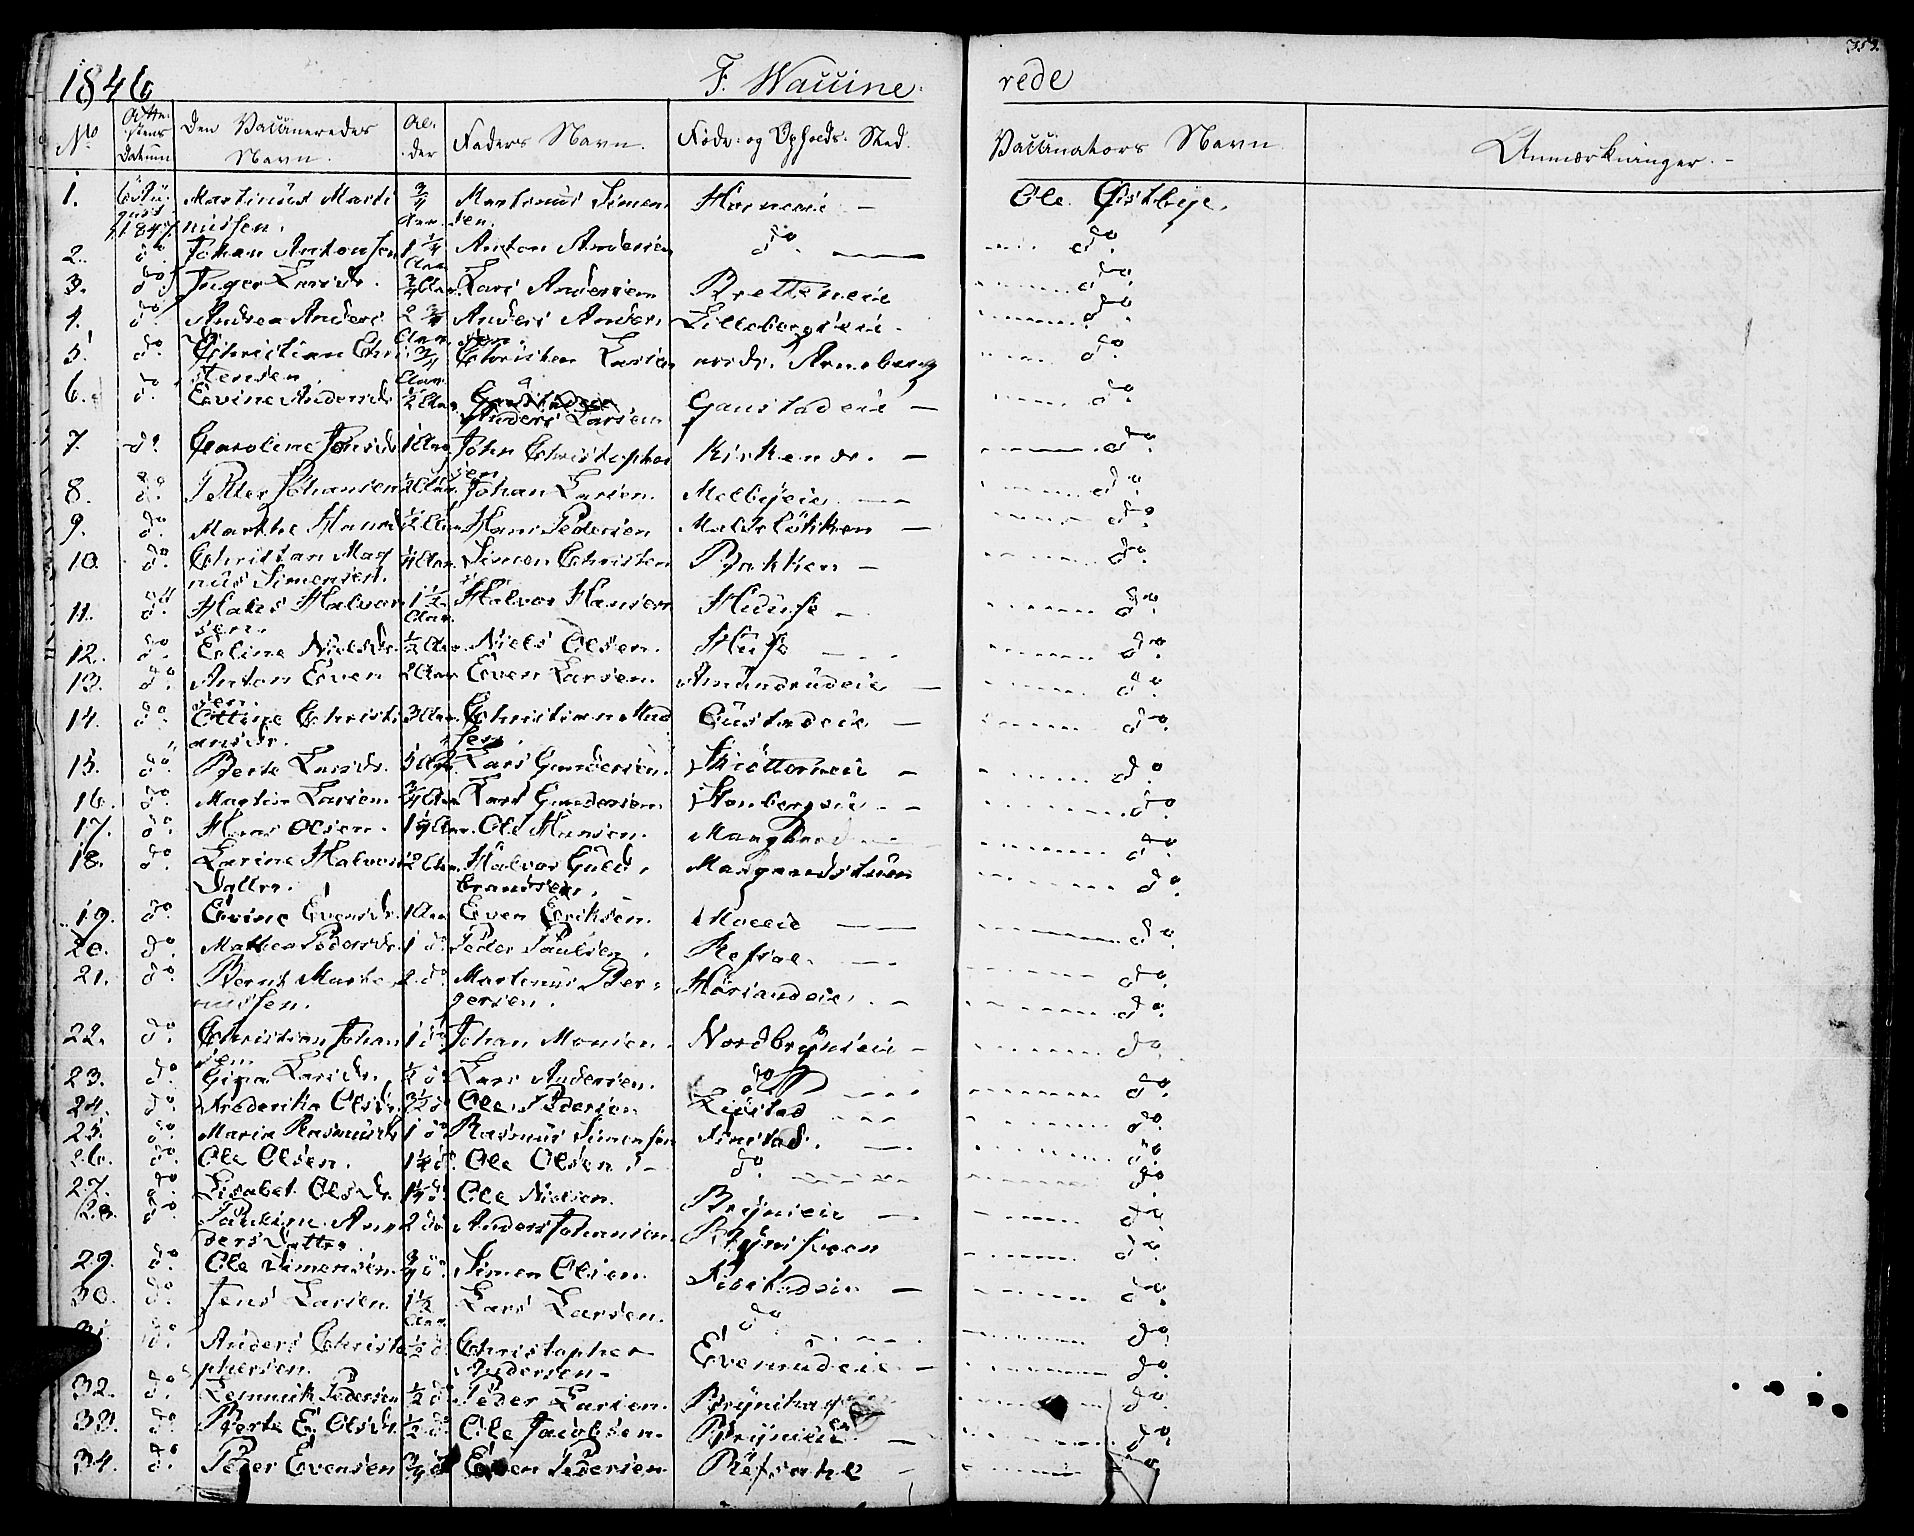 352.
1846 F. Vaccine- rede
No Attestens Datum Den Vaccineredes Navn. Alder Faders Navn. Føde- og Opholds-Sted. Vaccinators Navn Anmærkninger.
1. 6 August 1847. Martinus Martinussen. 3/4 Aar. Martinus Simensen. Horneeie - Ole Østbye.
2. do Johan Antonsen 1 1/4 Aar Anton Andersen do. do.
3. do Inger Larsdr. 3/4 Aar. Lars Andersen Bratteneie do.
4. do. Andrea Anders 2 3/4 Aar. Anders Andersen. Lillebergseie. do.
5. do. Christian Christensen 3/4 Aar. Christen Larsen nordr. Arneberg do.
6. do. Evine Andersdr 1/2 Aar. Anders Larsen Gaustadeie - do.
7. do Caroline Johsdr 1 Aar John Christophersen Kirkenær. - do.
8. do. Petter Johansen Aar. Johan Larsen. Melbyeie do.
9. do. Marthe Hansd 1/2 Aar Hans Pedersen Melslökken - do.
10. do. Christian Magnus Simensen. Aar. Simen Christen Bakken - do.
11. do. Halvor 1 1/2 Aar. Halvor Hansen - do.
12. do. Eline Nielsdr. 1/2 Aar. Niels Olsen. do.
13. do. Anton Evensen. 2 Aar Even Larsen. Amundrudeie - do.
14. do. Ottine Christiansdr. 3 Aar. Christian Gustadeie - do.
15. do. Berte Larsdr. 5 Aar. Lars Gundersen. Skiötterneie - do.
16. do. Martin Larsen. 3/4 Aar Lars Gundersen. Stenbergseie - do.
17. do. Hans Olsen. Aar. Ole Hansen. do.
18. do. Larine Halvors Datter. 2 Aar. Halvor Guldbrandsen. do.
19. do. Evine Evensdr. 1 Aar Even Eriksen. Moeeie do.
20. do. Mathea Pedersdr. 1 do. Peder Paulsen. Refsal. do.
21. do. Bernt Martinussen. 2 do. Martinus Bergersen. Hörsandeie. - do.
22. do. Christian Johansen 1 do Johan Monsen. Nordbrynseie - do.
23. do. Gina Larsdr. 1/2 do Lars Andersen. do do.
24. do. Frederikke Olsdr. 3 1/2 do Ole Pedersen Liestad do.
25. do. Maria Rasmusdr 1 do. Rasmus Simensen Finstad. do.
26. do. Ole Olsen. 1 1/4 do. Ole Olsen. do. do
27. do. Lisabet Olsdr. do. Ole Nielsen. Brynseie do.
28. do. Pauline Anders Datter 2 do Anders Johansen. Brynsveen do.
29. do. Ole Simensen. 3/4 do. Simen Olsen. Finstadeie - do.
30. do. Jens Larsen. 1 1/2 Aar. Lars Larsen. do. do.
do. Anders Christophersen. 1/2 do Christopher Andersen. Evenrudeie - do.
32. do. Pedersen 1/2 do Peder Larsen. Brynihag do.
33. do. Berte E. Olsdr. 1/2 do Ole Jacobsen. Brynseie - do.
34. do. Peder Evensen 3/4 do Even Pedersen Refsahl - do.